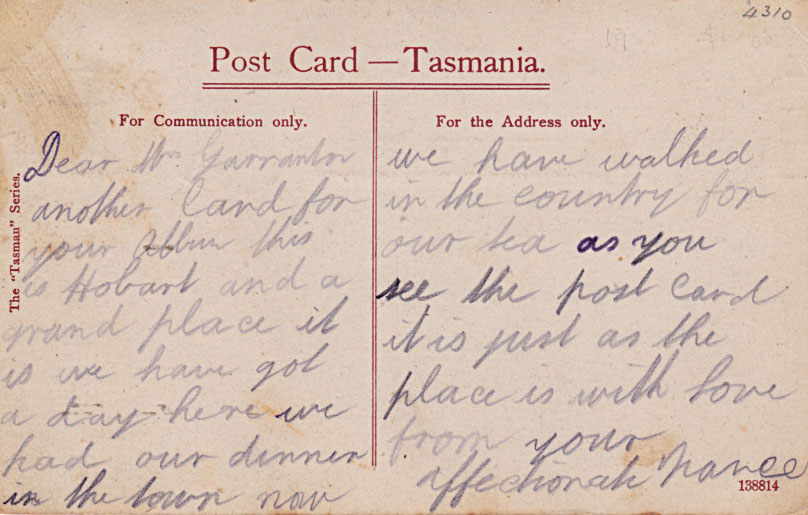 4310
Post Card — Tasmania.
For Communication only.
Dear Mrs Garranton
another Card for
your Album this
is Hobart and a
grand place it
is we have got
a day here we
had our dinner
in the town now
For the Address only.
we have walked
in the country for
our tea as you
see the post Card
it is just as the
place is with love
from your
affectionate
The "Tasman" Series.
138814